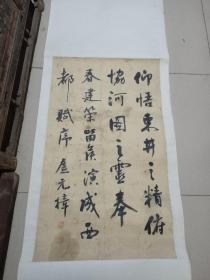 仰悟東井之精俯
協河圖之靈奉
春建策留侯演成西
都賦序